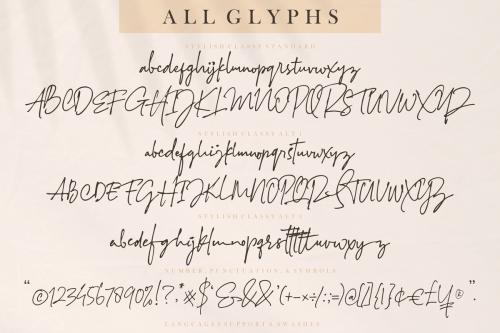 ALL GLYPHS
STYLISH CLASSY STANDARD
abcdefghijklmnopqrstuvwxyz
ABCDEFGHIJKLMNOPQRSTUVWXYZ
STYLISH CLASSY ALT 1
abcdefghijklmnopqrstuvwxyz
ABCDEFGHIJKLMNOPQRSTUVWXYZ
STYLISH CLASSY ALT 2
abcdefghijklmnopqrsttttuvwxyz
NUMBER, PUNCTUATION, & SYMBOLS
“©1234567890%!?,.*※$‘&&&’(+−×÷/:;=)@[]{}¢€£¥®”.
LANGUAGE SUPPORT & SWASHES